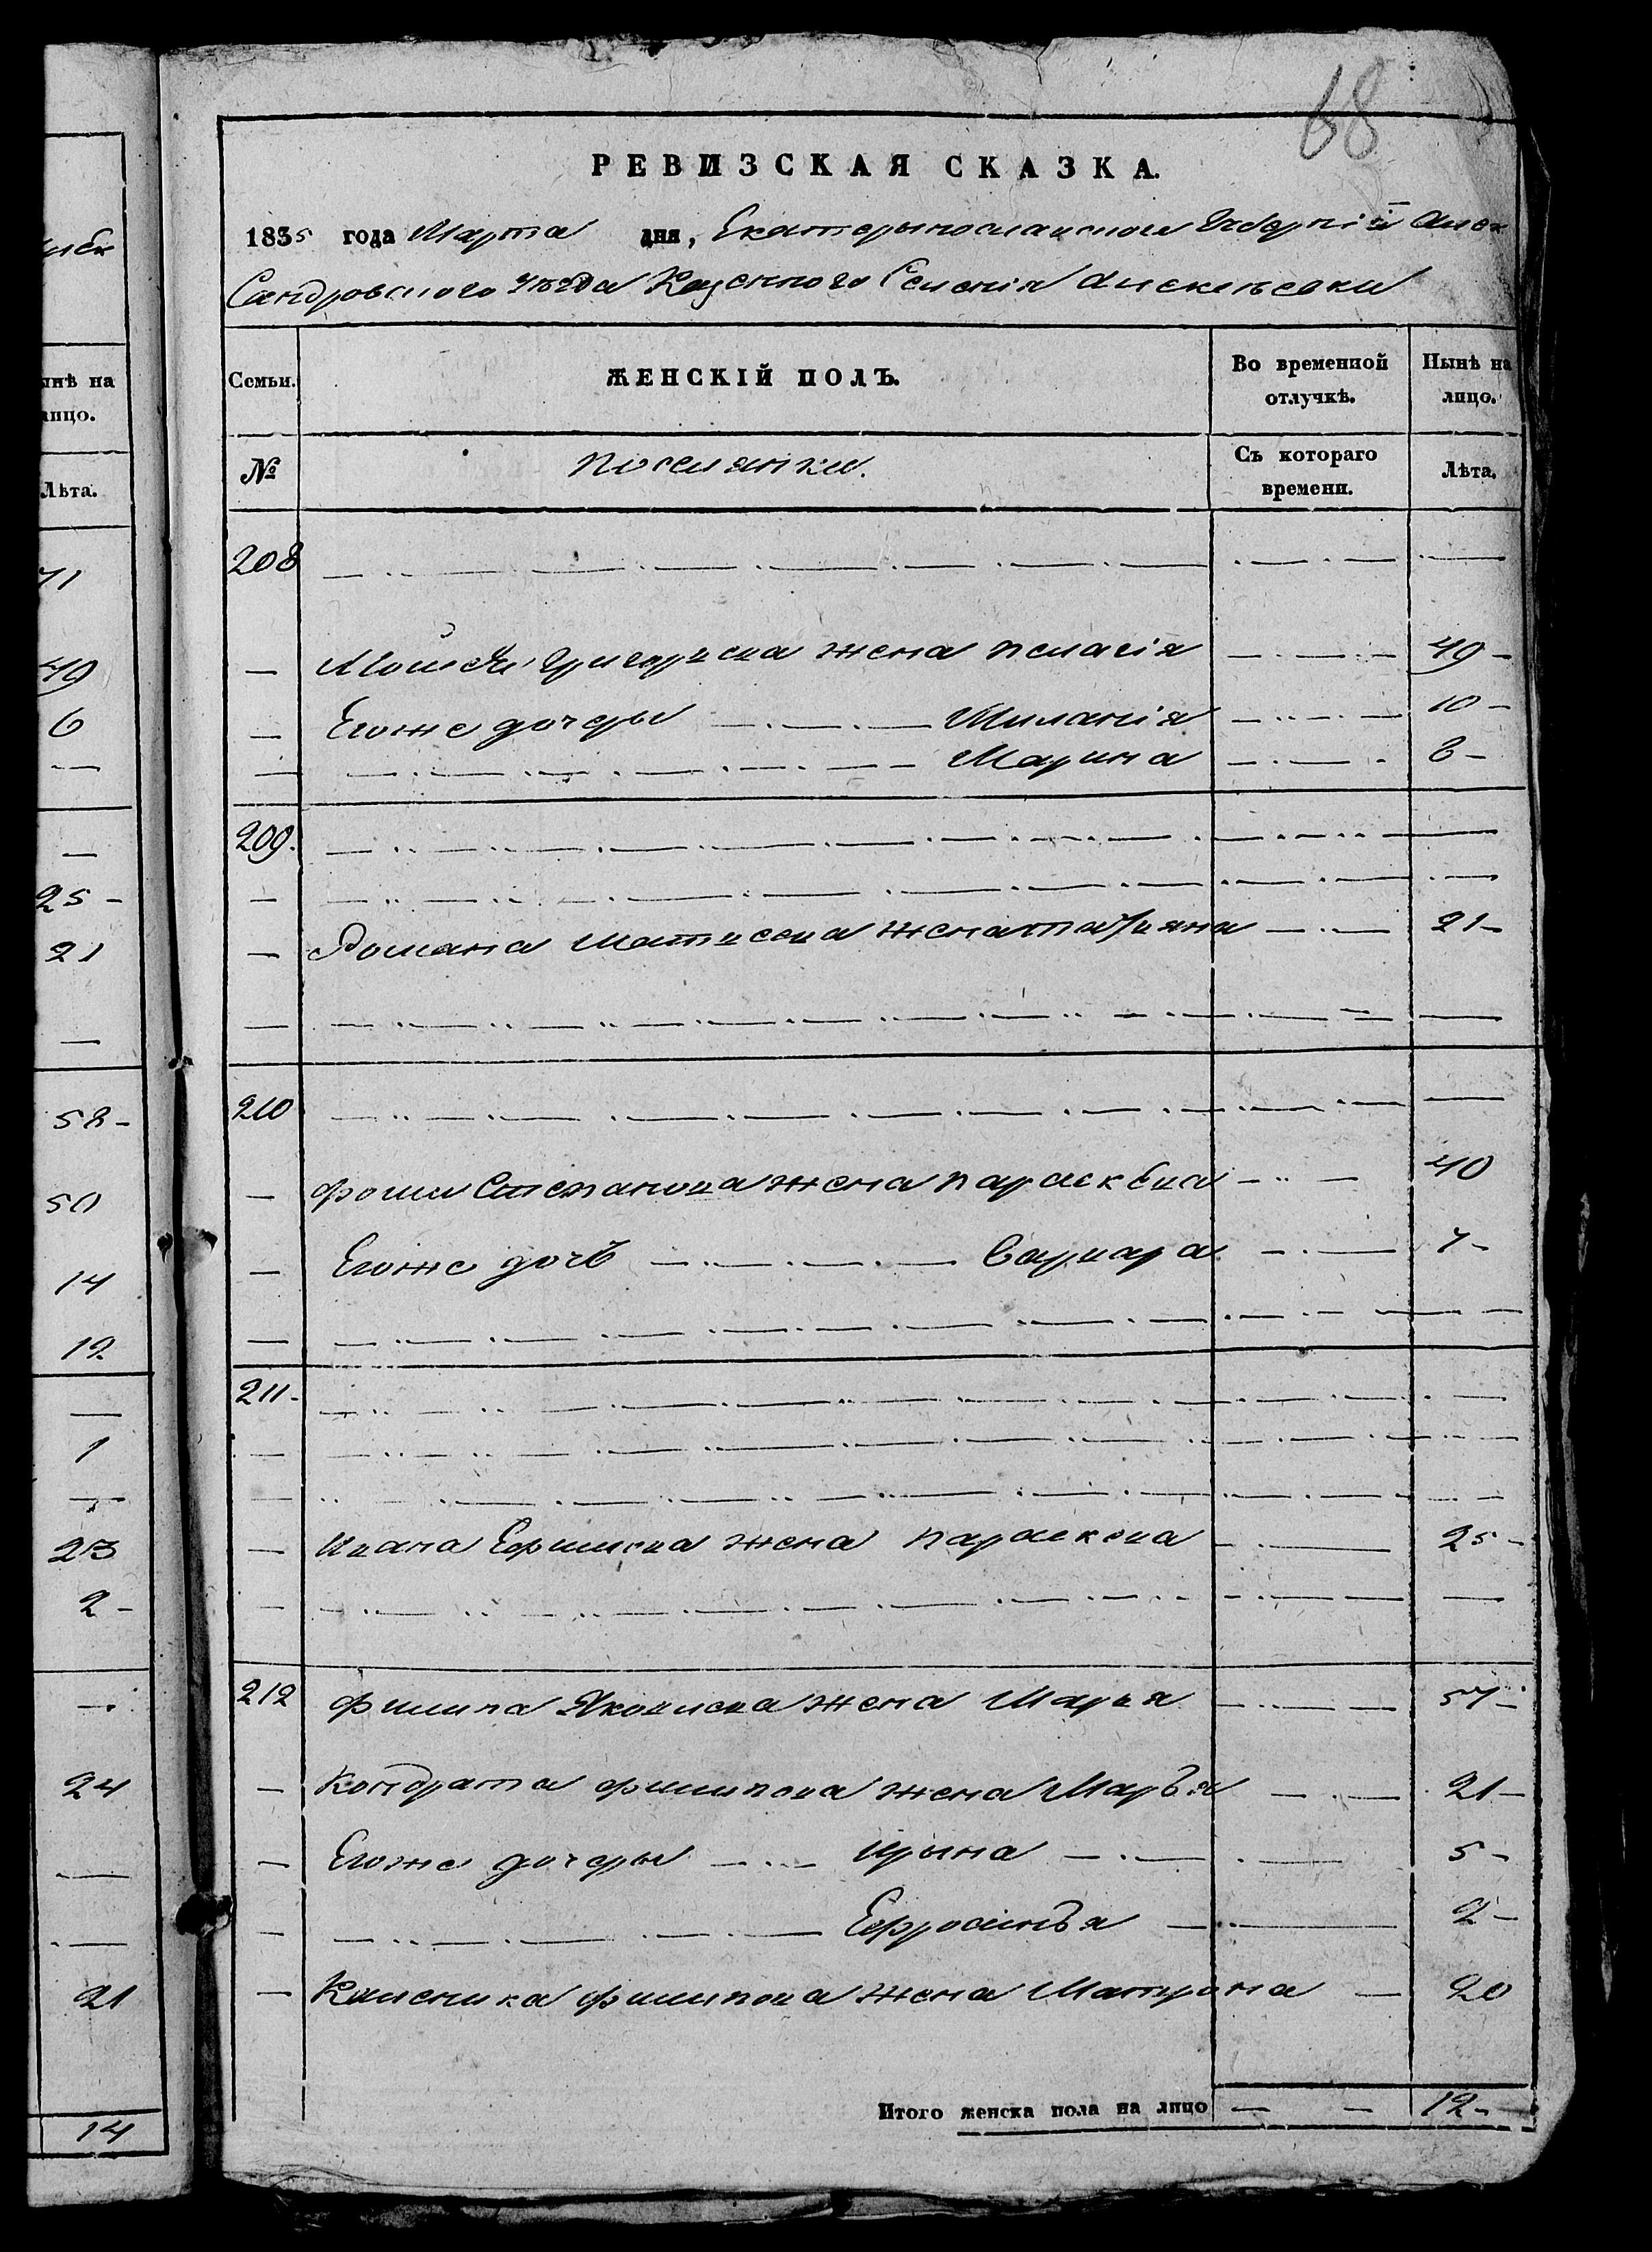 68
РЕВИЗСКАЯ СКАЗКА.
1835 года Марта дня, Екатерынославской Губерніи Алек
Сандровского уѣзда Казенного Селенія Алексѣевки
Семьи. ЖЕНСКІЙ ПОЛЪ. Во временной отлучкѣ. Нынѣ на лицо.
№ поселянки. Съ котораго времени. Лѣта.
208
Мойсея Григорьева жена пелагія 49
Егоже дочеры Миланія 10
Марина 6
209.
Романа Матвеева жена татіяна 21
210
фомы Степанова жена параскева 40
Егоже дочь варвара 7
211
Ивана Ефимова жена параскева 25
212 филипа Яковлева жена Марья 57
Кондрата филипова жена Марья 21
Егоже дочеры ирына 5
Ефросинья 2
Климентия филипова жена Матрона 20
Итого женска пола на лицо 12
нѣ на
лицо.
Лѣта.
71
49
6
25
21
58
50
14
12
1
23
2
24
21
14